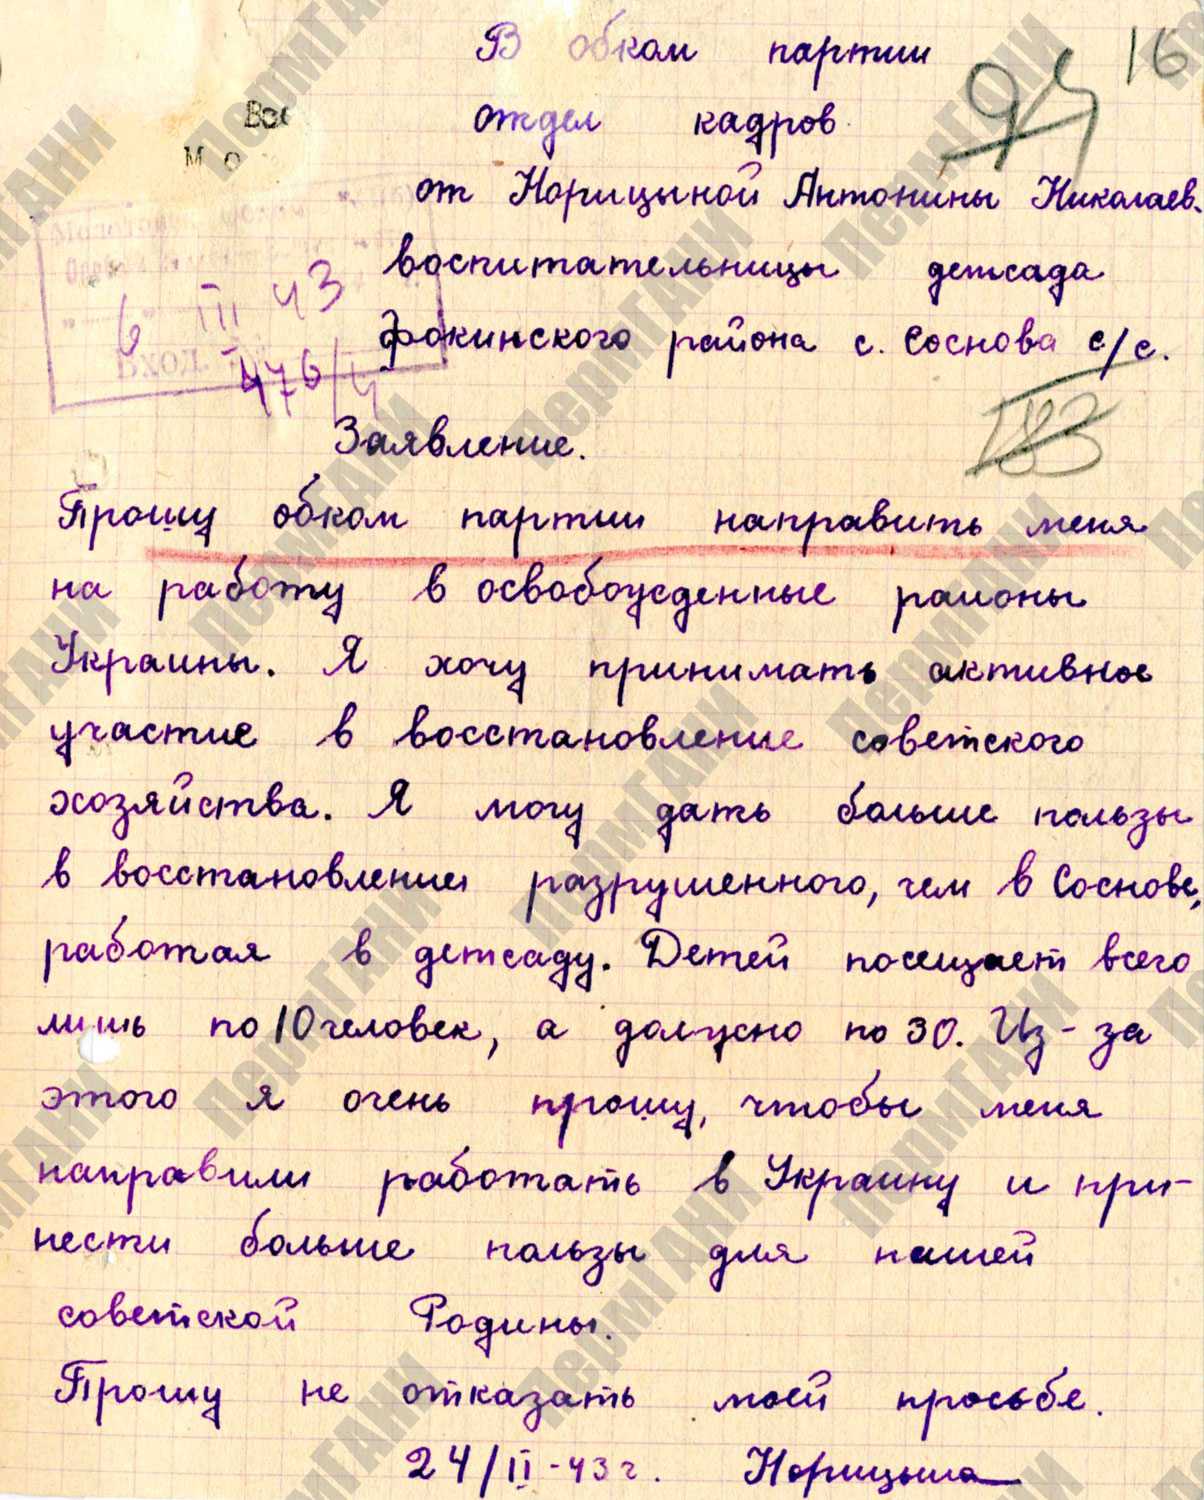 В обком партии
16
отдел кадров
от Норицыной Антонины Николаев.
воспитательницы детсада
Фокинского района с. Соснова с/с.
6 III 43
Вход.
476/4
183
Заявление.
Прошу обком партии направить меня
на работу в освобожденные районы
Украины. Я хочу принимать активное
участие в восстановление советского
хозяйства. Я могу дать больше пользы
в восстановлении разрушенного, чем в Соснове,
работая в детсаду. Детей посещает всего
лишь по 10 человек, а должно по 30. Из-за
этого я очень прошу, чтобы меня
направили работать в Украину и при-
нести больше пользы для нашей
советской Родины.
Прошу не отказать моей просьбе.
24/II-43 г. Норицына
ПермГАНИ